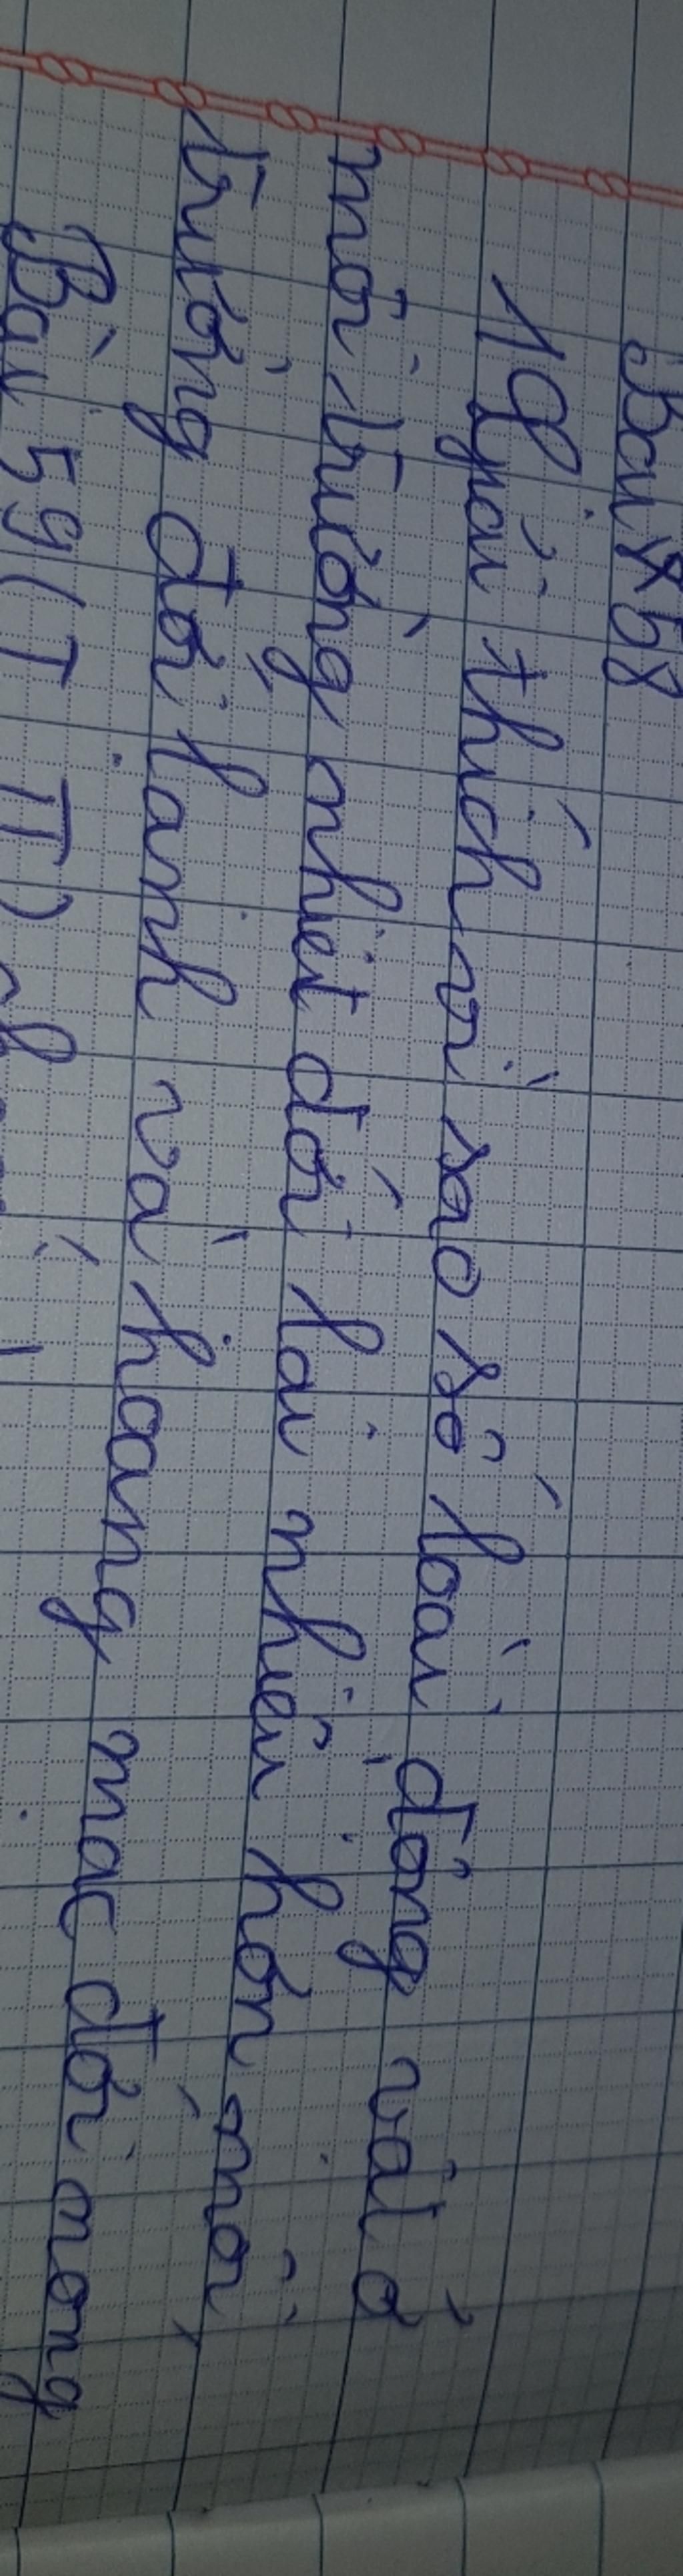 Bài 58
1 Giải thích vì sao số loài động vật ở
môi trường nhiệt đới lại nhiều hơn môi
trường đới lạnh và hoang mạc đới nóng
Bài 59 (I II)